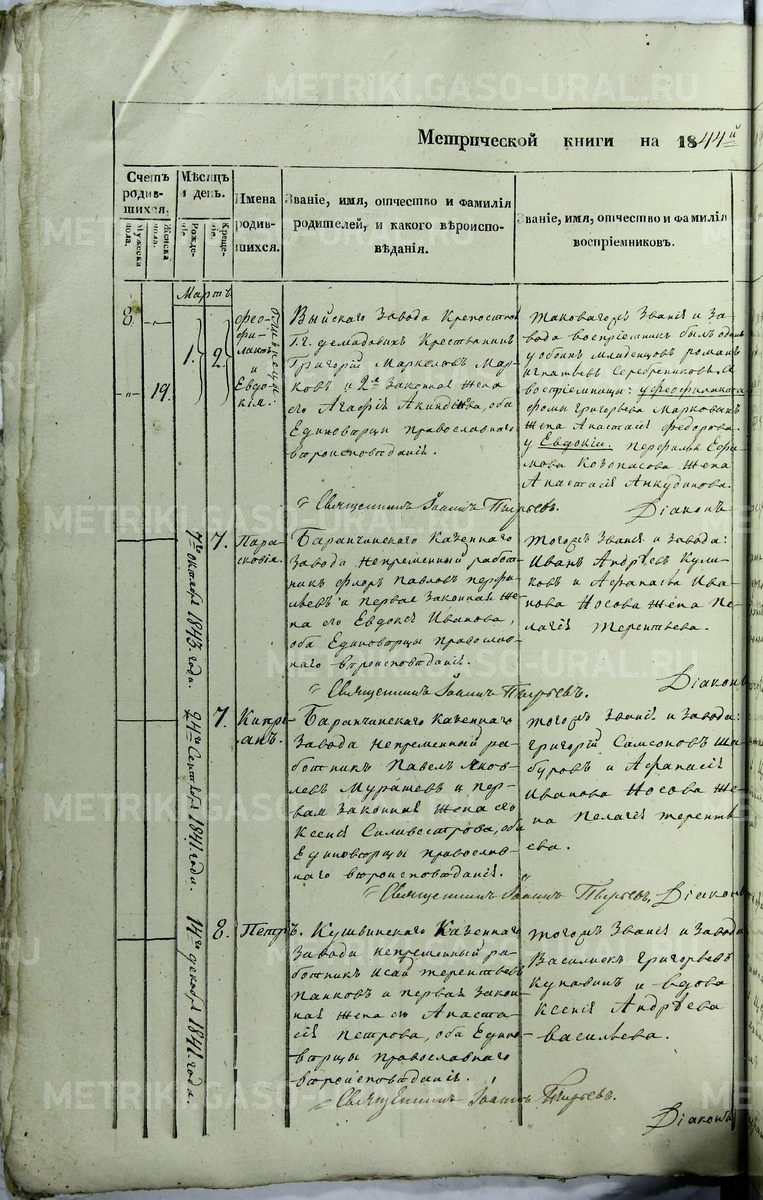 METRIKI.GASO-URAL.RU
Метрической книги на 1844й
Счетъ родив-
шихся.
Мужеска
пола.
Женска
пола.
Мѣсяцъ
и день.
Рожде-
нія.
Креще-
нія.
Имена
родив-
шихся.
Званіе, имя, отчество и фамилія
родителей, и какого вѣроиспо-
вѣданія.
Званіе, имя, отчество и фамилія
воспріемниковъ.
Мартъ
8
19.
1.
2.
Фео-
фи-
лактъ
и
Евдо-
кія.
близнецы
Выйскаго Завода Крепостной
Г.г. Демидовыхъ Крестьянинъ
Григорій Маркеловъ Мар-
ковъ и 2я законная жена
его Агафія Акиндінова, оба
Единоверцы православнаго
вѣроисповѣданія.
Таковагожъ Званія и За-
вода воспріемникъ былъ одинъ
у обоихъ младенцовъ Романъ
Игнатьевъ Серебрениковъ. А
воспріемницы: у Феофилакта
Фомы Григорьева Маркова
жена Анастасія Федорова.
у Евдокіи. Перфилья Ефи-
мова Козопасова жена
Анастасія Анкудинова.
Священникъ Іоаннъ Пырьевъ.
Діаконъ
7го октября 1843. года.
7.
Пара-
сковія.
Баранчинскаго Казеннаго
Завода Непременный работ-
никъ Флоръ Павловъ Перфи-
льевъ и первая законная же-
на его Евдокія Иванова,
оба Единоверцы православ-
наго вѣроисповѣданія.
Тогожъ Званія и завода:
Иванъ Андрѣевъ Кули-
ковъ и Афанасья Ива-
нова Носова жена Пе-
лагія Терентьева.
Священникъ Іоаннъ Пырьевъ.
Діаконъ
24го Сентября 1841. года.
7.
Кипрі-
анъ.
Баранчинскаго Казеннаго
Завода непременный ра-
ботникъ Павелъ Яков-
левъ Мурашевъ и пер-
вая законная жена его
Ксенія Силиверстрова, оба
Единоверцы православ-
наго вѣроисповѣданія.
Тогожъ званія и завода:
Григорій Самсоновъ Ша-
буровъ и Афанасія
Иванова Носова же-
на Пелагія Теренть-
ева.
Священникъ Іоаннъ Пырьевъ.
Діаконъ
14го декабря 1841. года.
8.
Петръ.
Кушвинскаго Казеннаго
Завода непременный ра-
ботникъ Исай Терентьевъ
Панковъ и первая закон-
ная жена его Анаста-
сія Петрова, оба Едино-
вѣрцы православнаго
вѣроисповѣданія.
Тогожъ Званія и Завода
Василискъ Григорьевъ
Купавинъ и вдова
Ксенія Андрѣева
Васильева.
Священникъ Іоаннъ Пырьевъ.
Діаконъ